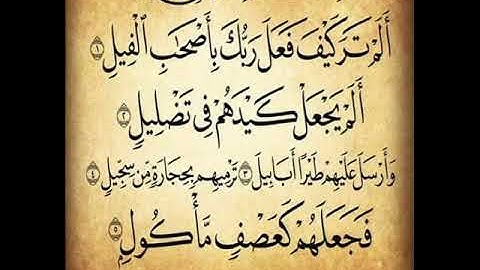 أَلَمْ تَرَ كَيْفَ فَعَلَ رَبُّكَ بِأَصْحَابِ الْفِيلِ ١
أَلَمْ يَجْعَلْ كَيْدَهُمْ فِي تَضْلِيلٍ ٢
وَأَرْسَلَ عَلَيْهِمْ طَيْرًا أَبَابِيلَ ٣ تَرْمِيهِم بِحِجَارَةٍ مِّن سِجِّيلٍ ٤
فَجَعَلَهُمْ كَعَصْفٍ مَّأْكُولٍ ٥